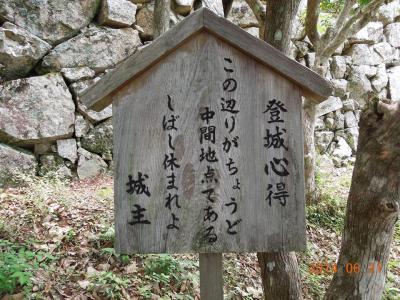 登城心得
この辺りがちょうど
中間地点である
しばし休まれよ
城主